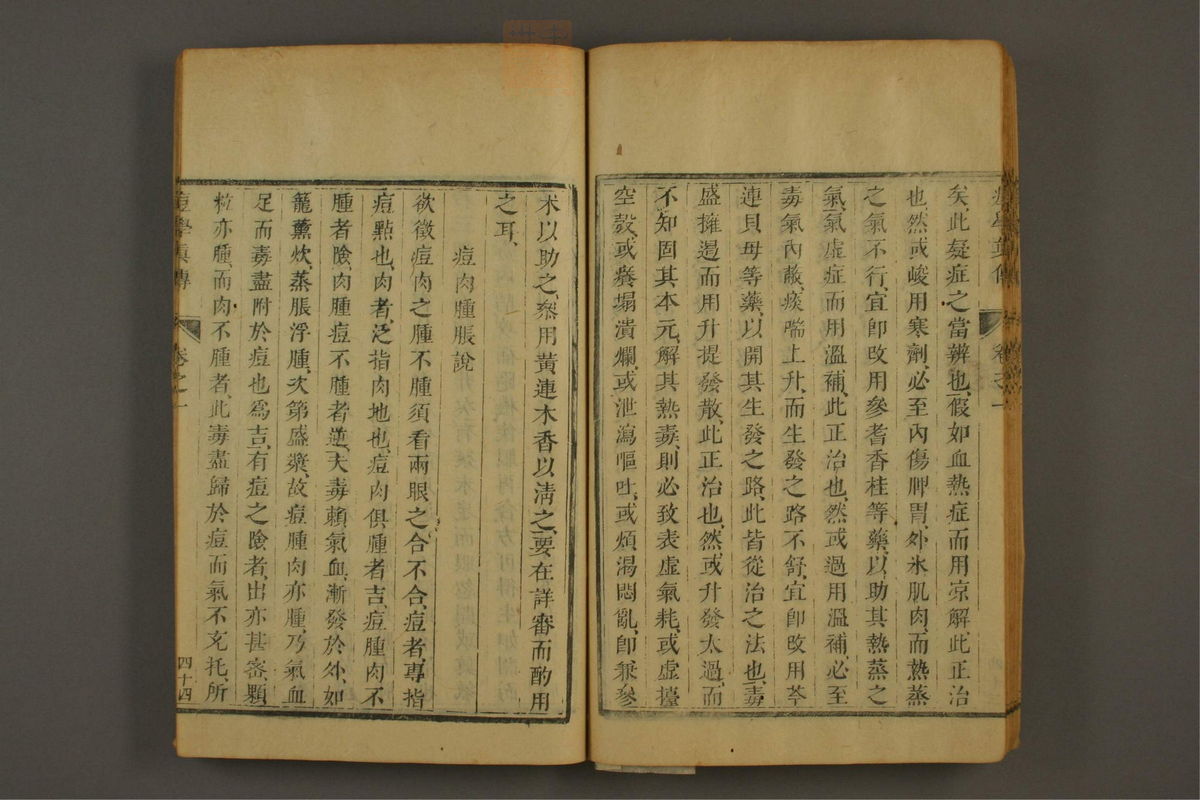 痘學眞傳 卷之一
矣、此疑症之當辨也、假如血熱症而用凉解此正治
也、然或峻用寒劑、必至內傷脾胃、外氷肌肉、而熱蒸
之氣不行、宜卽改用參耆香桂等藥、以助其熱蒸之
氣、氣虛症而用溫補、此正治也、然或過用溫補、必至
毒氣內蔽、痰喘上升、而生發之路不舒、宜卽改用芩
連貝母等藥、以開其生發之路、此皆從治之法也、毒
盛擁遏而用升提發散、此正治也、然或升發太過、而
不知固其本元、解其熱毒、則必致表虛氣耗、或虛擡
空殼、或癢塌潰爛、或泄瀉嘔吐、或煩渴悶亂、卽兼參
朮以助之、兼用黃連木香以淸之、要在詳審而酌用
之耳、
痘肉腫脹說
欲徵痘肉之腫不腫須看兩眼之合不合、痘者、專指
痘點也、肉者、泛指肉地也、痘肉俱腫者吉、痘腫肉不
腫者險、肉腫痘不腫者逆、夫毒賴氣血、漸發於外、如
籠薰炊、蒸脹浮腫、次第盛漿、故痘腫肉亦腫、乃氣血
足而毒盡附於痘也爲吉、有痘之險者、出亦甚密、顆
粒亦腫、而肉不腫者、此毒盡歸於痘而氣不充托、所
痘學眞傳 卷之一 四十四